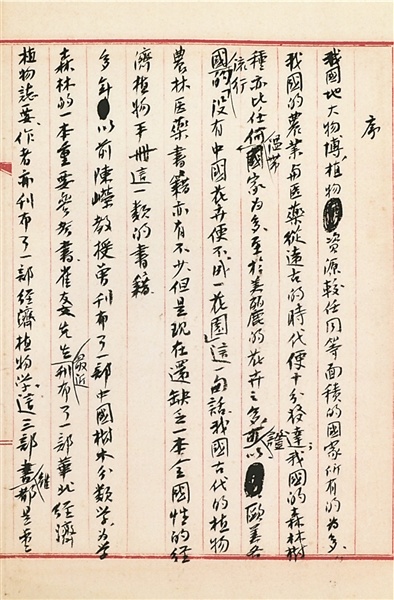 序
我國地大物博,植物資源較任何同等面積的國家所有的为多。
我國的農業与医藥從遠古的時代便十分發達;我國的森林樹
種亦比任何溫帶國家为多。至於美麗的花卉之多,可以證歐美各
國的流行沒有中國花卉便不成一花園這一句話。我國古代的植物
農林医藥書籍亦有不少。但是現在還缺乏一本全國性的經
濟植物手冊這一類的書籍。
多年以前陳嶸教授曾刊布了一部中國樹木分類学,为学
森林的一本重要參考書。崔友文先生最近刊布了一部華北經濟
植物誌要。作者亦刊布了一部經濟植物学。這三部書都是重